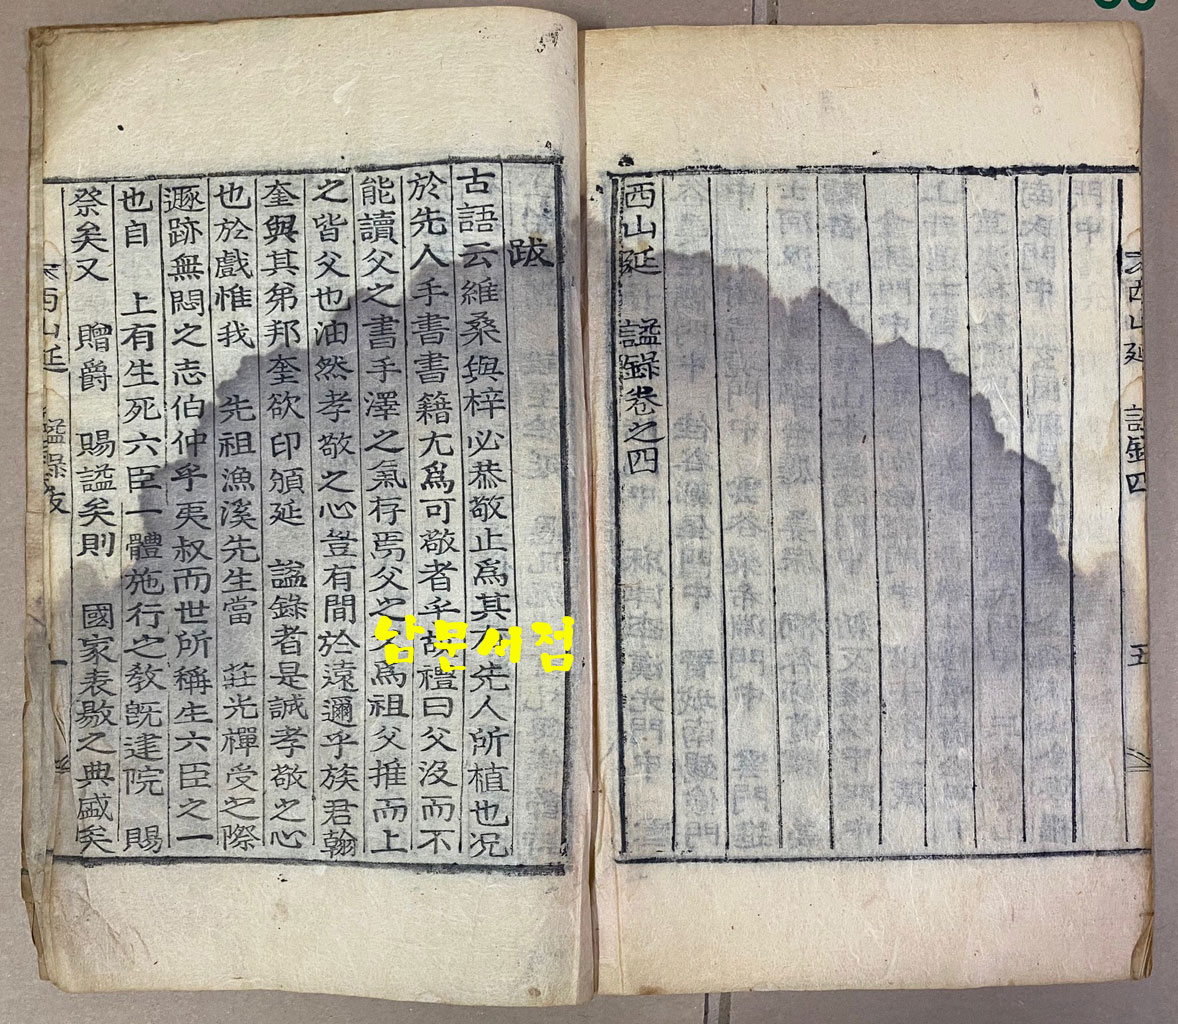 西山延 諡錄卷之四
西山延 諡錄四 五
跋
古語云維桑與梓必恭敬止爲其先人所植也况
於先人手書書籍尤爲可敬者乎故禮曰父沒而不
能讀父之書手澤之氣存焉父之父爲祖父推而上
之皆父也油然孝敬之心豈有間於遠邇乎族君翰
奎與其弟邦奎欲印頒延 諡錄者是誠孝敬之心
也於戲惟我 先祖漁溪先生當 莊光禪受之際
遯跡無悶之志伯仲乎夷叔而世所稱生六臣之一
也自 上有生死六臣一體施行之敎旣建院 賜
祭矣又 贈爵 賜諡矣則 國家表敭之典盛矣
西山延 諡錄跋 一
남문서점